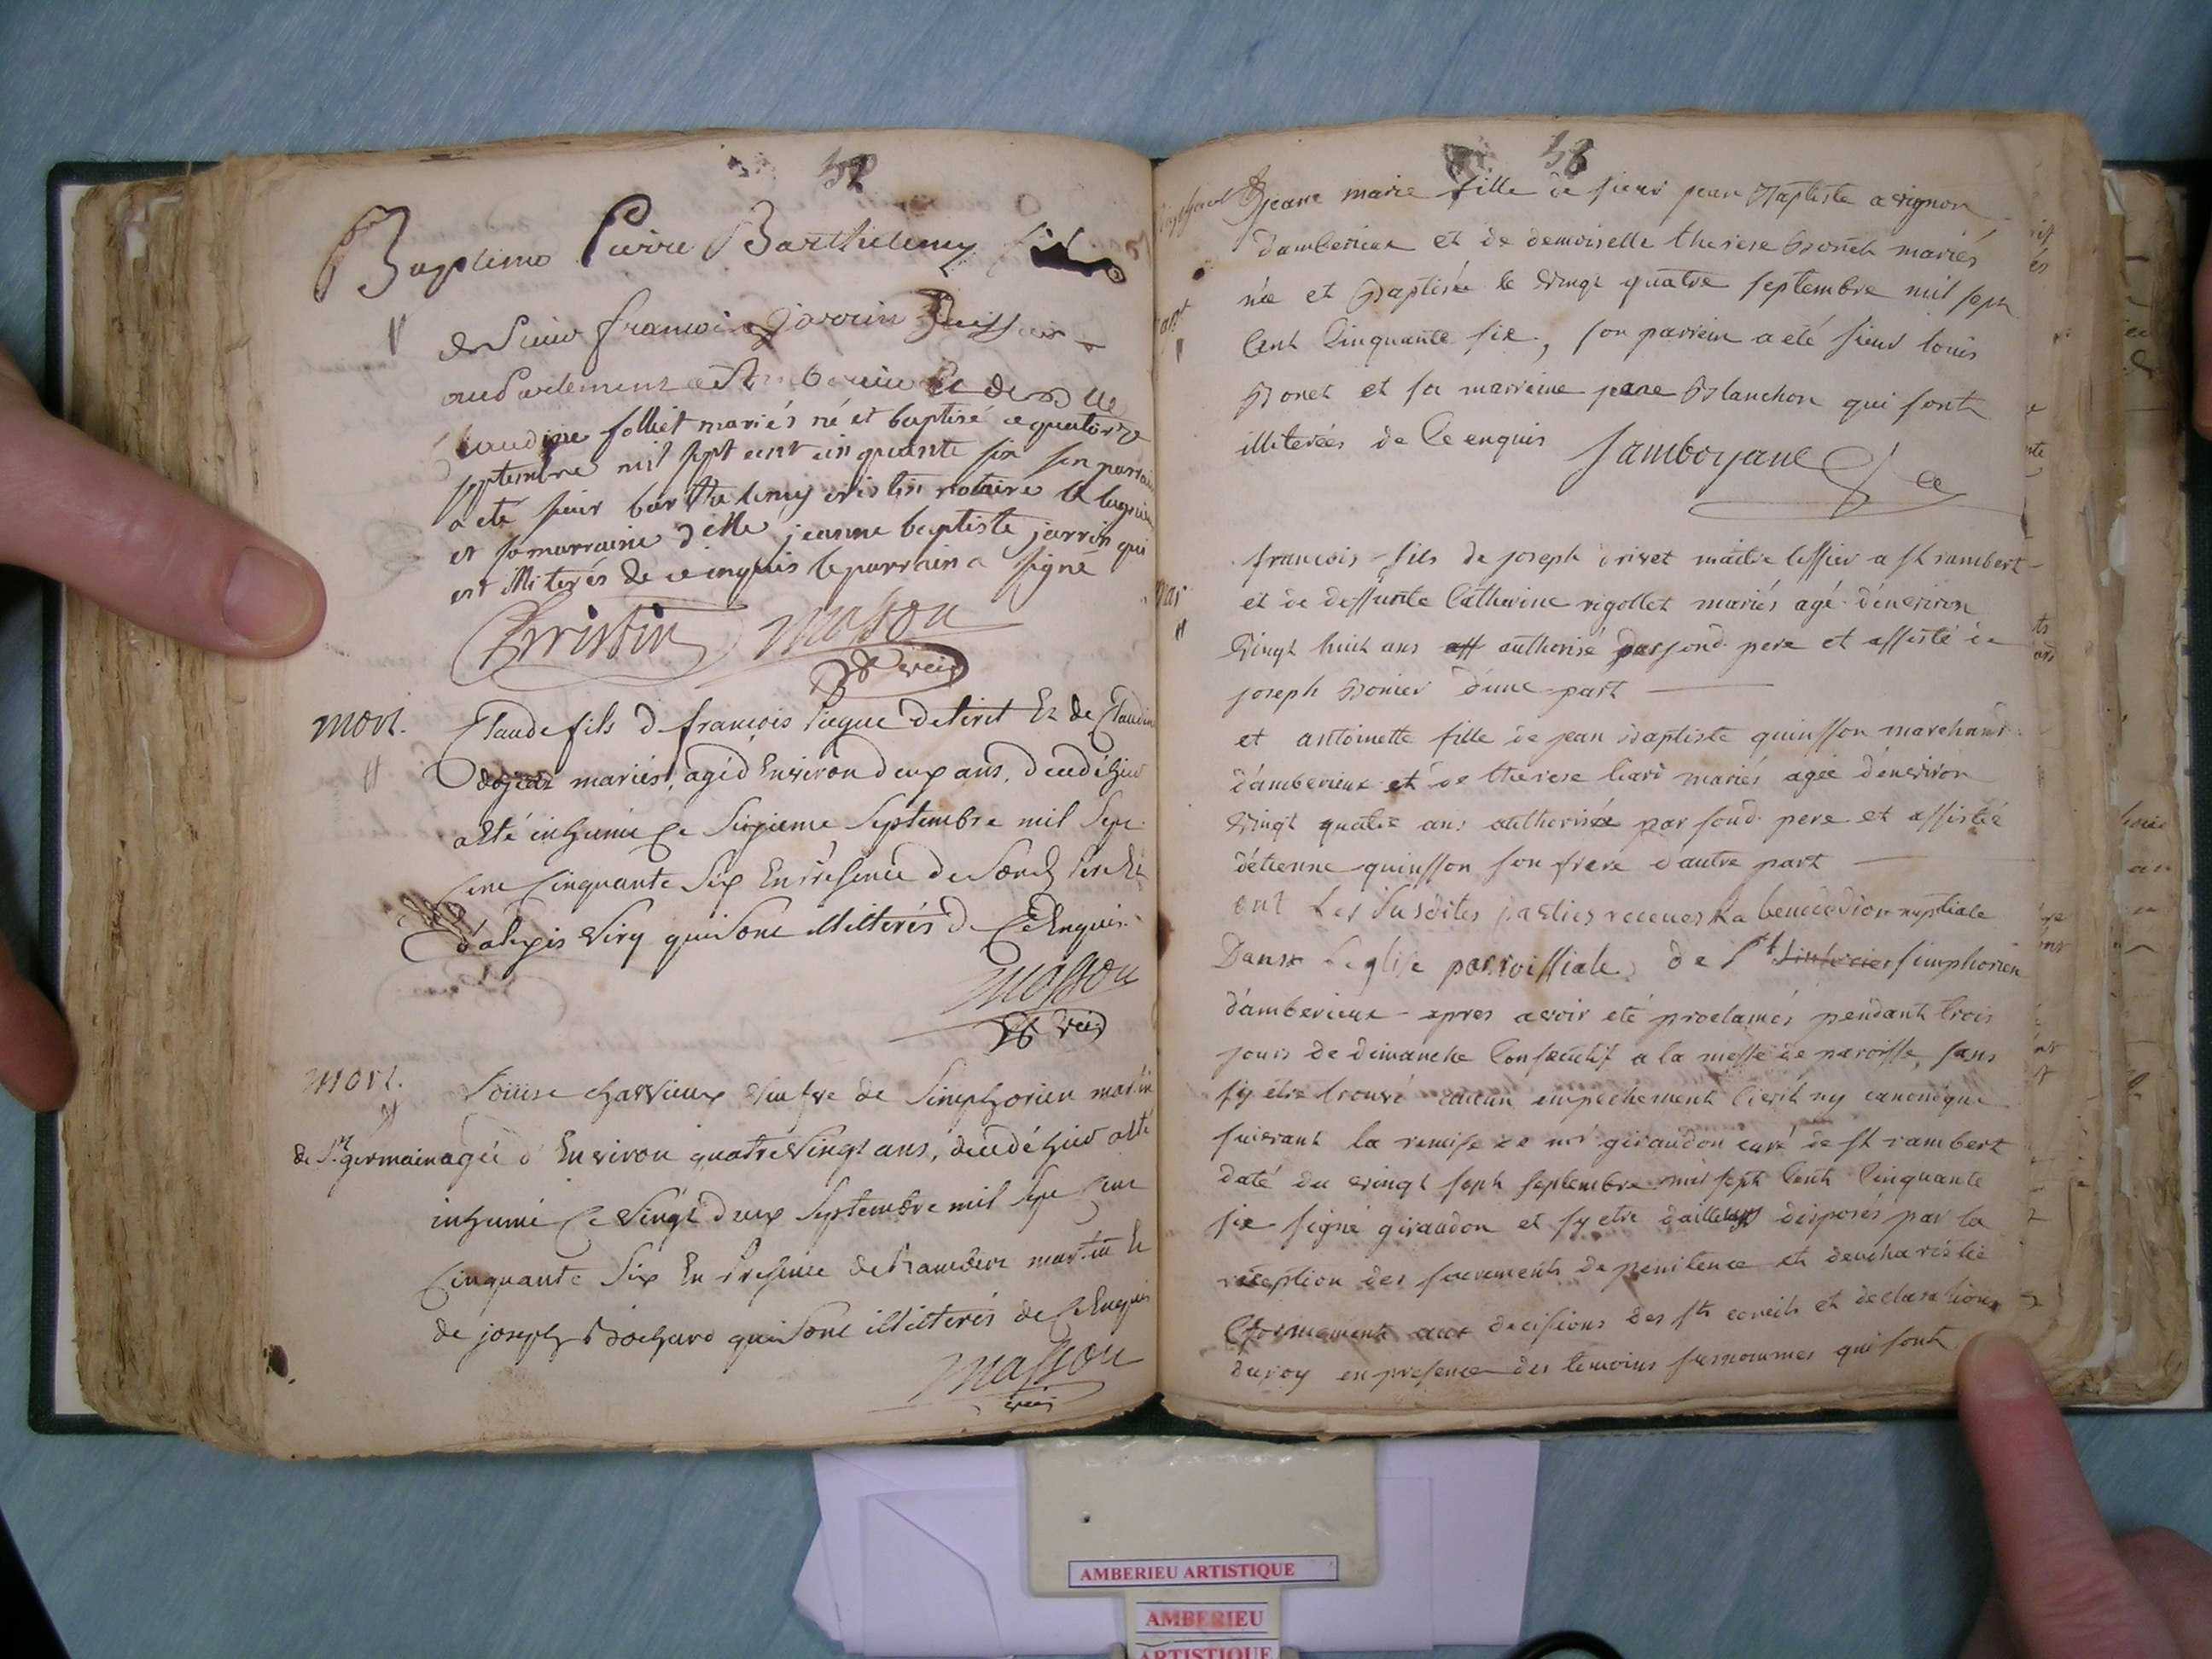 52
Baptême Pierre Barthelemy fils
de Sieur francois jarrin huissier
au Parlement d'Amberieu et de Dlle
Claudine folliet mariés né et baptisé ce quatorze
septembre mil sept cent cinquante six son parrain
a eté sieur barthelemy cristin notaire
et sa marraine delle jeanne baptiste jarrin qui
est illiterés de ce enquis le parrain a signé
Christin Masson
vic
mort. Claude fils de francois et de Claudine
mariés, agé d'Environ deux ans, decedé hier
a eté inhumé Ce Sixieme Septembre mil Sept
Cent Cinquante Six En présence de
d'alexis Viry qui sont illiterés de Ce Enquis
Masson
vic
mort. Louise Veufve de Simphorien martin
de St germain agée d'Environ quatre Vingt ans, decedé hier a eté
inhumé Ce Vingt deux Septembre mil Sept Cent
Cinquante Six En Presence de Rambert martin Et
de joseph Bochard qui sont illiterés de Ce Enquis
Masson
vic
58
jeane marie fille de sieur jean Baptiste avignon
d'amberieux et de demoiselle therese Bonet mariés
née et Baptisée le vingt quatre septembre mil sept
Cent Cinquante six, son parrein a eté sieur louis
Bonet et sa marreine jeane Blanchon qui sont
illiterées de Ce enquis Jamboyane
francois fils de joseph drivet maitre a st rambert
et de deffunte Catherine rigollet mariés agé d'environ
vingt huit ans authorisé par sond. pere et assisté de
joseph Bonier d'une part
et antoinette fille de jean Baptiste quinsson marchand
d'amberieux et de therese liard mariés agée d'environ
vingt quatre ans authorisée par sond. pere et assistée
d'etienne quinsson son frere d'autre part
ont Les susdites parties receues La benediction nuptiale
Dans L'eglise parroissiale de St simphorien
d'amberieux apres avoir eté proclamés pendant trois
jours de dimanche Consecutif a la messe de paroisse, sans
sy etre trouvé aucun empechement Civil ny canonique
suivant la remise de mr giraudon curé de st rambert
daté du vingt sept septembre mil sept Cent Cinquante
six signé giraudon et sy etre d'ailleurs disposés par la
reception des sacrements de penitence et d'eucharistie
Conformement aux decisions des sts conciles et declarations
du roy en presence des temoins susnommes qui sont
AMBERIEU ARTISTIQUE
AMBERIEU
ARTISTIQUE